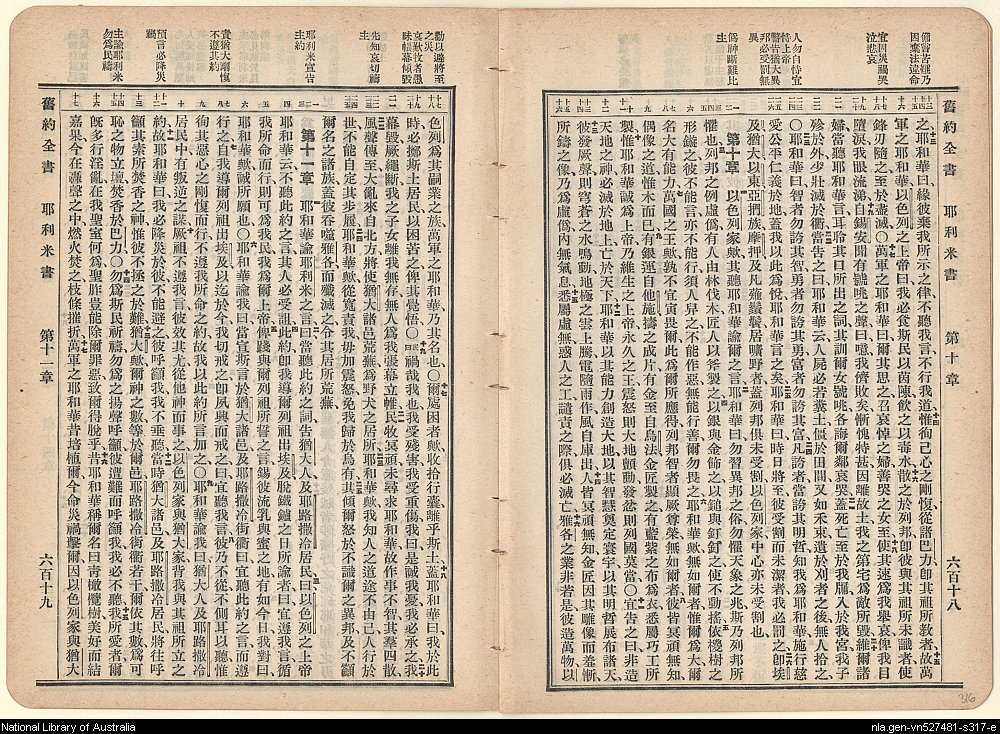 備嘗苦難乃
因棄法違命
宜因災禍哭
泣悲哀
人勿自恃宜
恃上帝
警告猶大異
邦必受罰無
異
僞神斷難比
主
舊約全書 耶利米書 第十章 六百十八
之、耶和華曰、緣彼棄我所示之律、不聽我言、不行我道、惟徇己心之剛愎、從諸巴力、卽其祖所教者、故萬
軍之耶和華、以色列之上帝曰、我必食斯民以茵蔯、飲之以毒水、散之於列邦、卽彼與其祖所未識者、使
鋒刃隨之、至於盡滅、〇萬軍之耶和華曰、爾其思之、召哀悼之婦、善哭之女至、使其速爲我舉哀、俾我目
墮淚、我眼流涕、自錫安聞有號咷之聲曰、噫、我儕敗壞、慚愧特甚、因離故土、我之第宅爲敵所毀、維爾諸
婦、當聽耶和華言、耳聆其口所出之詞、其訓爾女號咷、各誨爾鄰哀哭、蓋死亡至於我牖、入於我宮、我子
殄於外、少壯滅於衢、當告之曰、耶和華云、人屍必若糞土、僵於田間、又如禾束遺於刈者之後、無人拾之、
〇耶和華曰、智者勿誇其智、勇者勿誇其勇、富者勿誇其富、凡誇者當誇其明哲、知我爲耶和華、施行慈
愛公平仁義於地、蓋我以此爲悅、耶和華言之矣、耶和華曰、時日將至、彼受割而未潔者、我必罰之、卽埃
及猶大以東亞捫族摩押、及凡薙鬚髮、居曠野者、蓋列邦俱未受割、以色列家中心亦未受割也、
第十章 以色列家歟、其聽耶和華諭爾之言、耶和華曰、勿習異邦之俗、勿懼天象之兆、斯乃列邦所
懼也、列邦之例虛僞、有人由林伐木、匠人以斧製之、以銀與金飾之、以鎚與釘釘之、使不動搖、依椶樹之
形鏇之、彼不能言、亦不能行、須人舁之、不能作惡、無能行善、爾勿畏之、耶和華歟、無如爾者、爾惟爲大、爾
名大有能力、萬國之王歟、孰不宜寅畏爾、此爲爾所應得、列邦智者、顯厥尊榮、無如爾者、彼皆冥頑無知、
偶像之道、惟木而已、有銀運自他施、擣之成片、有金至自烏法、金匠製之、有藍紫之布爲衣、悉屬巧工所
製、惟耶和華誠爲上帝、乃維生之上帝、永久之王、震怒則大地顫動、發忿則列國莫當、〇宜告之曰、非造
天地之神、必滅於地上、亡於天下、耶和華以其能力創造大地、以其智慧奠定寰宇、以其明哲展布諸天、
彼發厥聲、則穹蒼之水鳴動、地極之雲上騰、電隨雨作、風自庫出、人皆冥頑無知、金匠因其雕像而羞慚、
所鑄之像、乃爲虛僞、內無氣息、悉屬虛無、惑人之工、譴責之際、俱必滅亡、雅各之業非若是、彼造萬物、以
勸以避將至
之災
哀歎牧者愚
昧帳幕傾毀
先知哀切禱
主
耶利米宣告
主約
責猶大剛愎
不遵其約
預言必降災
禍
主諭耶利米
勿爲民禱
色列爲其嗣業之族、萬軍之耶和華乃其名也、〇爾處困者歟、收拾行囊、離乎斯土、蓋耶和華曰、我於此
時、必擲斯土居民、以困苦之、俾其覺悟、〇民曰、禍哉我也、我受殘害、我受重傷、我曰、是誠我憂、我必承之、我
幕毀、厥繩斷、我之子女離我、無存無人爲我張幕立帷、民牧冥頑、未尋求耶和華、故作事不智、其羣四散、
風聲傳至、大亂來自北方、將使猶大諸邑荒蕪、爲野犬之居所、耶和華歟、我知人之道途、不由己、人行於
世、不能自定其步履、耶和華歟、從寬責我、毋加震怒、免我歸於烏有、其傾爾怒於不識爾之異邦、及不籲
爾名之諸族、蓋彼吞噬雅各、而殲滅之、令其居所荒蕪、
第十一章 耶和華諭耶利米之言、曰、當聽此約之詞、告猶大人、及耶路撒冷居民、曰、以色列之上帝
耶和華云、不聽此約之言、其人必受詛、此約卽我導爾列祖出埃及、脫鐵鑪之日所諭者、曰、宜遵我言、循
我所命而行、則可爲我民、我爲爾上帝、俾踐與爾列祖所誓之言、錫彼流乳與蜜之地、有如今日、我對曰、
耶和華歟、誠所願也、〇耶和華諭我曰、當宣斯言於猶大諸邑、及耶路撒冷街衢、曰、宜聽此約之言、而遵
行之、自我導爾列祖出埃及、以迄於今、我切戒之、卽夙興而戒之曰、宜聽我言、彼乃不從、不側耳以聽、惟
徇其惡心之剛愎而行、不遵我所命之約、故我以此約所言加之、〇耶和華諭我曰、猶大人及耶路撒冷
居民中、有叛逆之謀、厥祖不遵我言、彼效其尤、從他神而事之、以色列家與猶大家、背我與其祖所立之
約、故耶和華曰、我必降災於彼、不能避之、彼呼籲我、我不垂聽、當時猶大諸邑、及耶路撒冷居民、將往呼
籲其素所焚香之神、惟彼不拯之於難、猶大歟、爾神之數、等於爾邑、耶路撒冷街衢若干、爾依其數、爲可
恥之物立壇、焚香於巴力、〇勿爲斯民祈禱、勿爲之揚聲呼籲、彼遭難而呼籲我、我必不聽、我所愛者、爾
旣多行淫亂、在我聖室何爲、聖胙豈能除爾罪惡、致爾得脫乎、昔耶和華稱爾名曰、靑橄欖樹、美好而結
嘉果、今在讙聲之中、燃火焚之、枝條摧折、萬軍之耶和華、昔培植爾、今命災禍擊爾、因以色列家與猶大
舊約全書 耶利米書 第十一章 六百十九
316
National Library of Australia
nla.gen-vn527481-s317-e